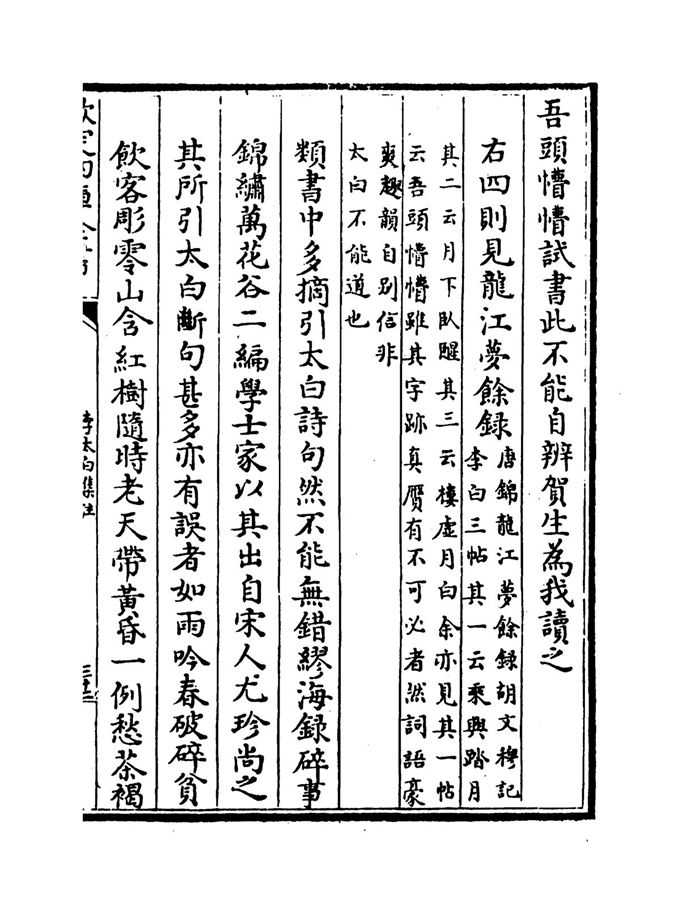 吾頭懵懵試書此不能自辨賀生為我讀之
右四則見龍江夢餘録
唐錦龍江夢餘録胡文穆記
李白三帖其一云乘興踏月
其二云月下臥醒其三云樓虛月白余亦見其一帖
云吾頭懵懵雖其字跡真贋有不可必者然詞語豪
爽趣韻自别信非
太白不能道也
類書中多摘引太白詩句然不能無錯繆海録碎事
錦繡萬花谷二編學士家以其出自宋人尤珍尚之
其所引太白斷句甚多亦有誤者如雨吟春破碎貧
飲客彫零山含紅樹隨時老天帶黃昏一例愁茶褐
欽定四庫全書
李太白集注